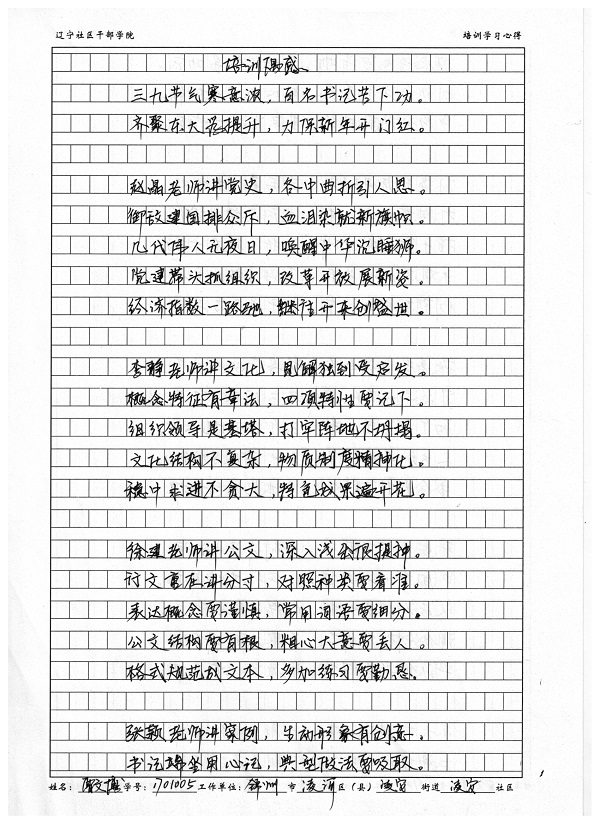 辽宁社区干部学院 培训学习心得
培训感
三九节气寒意浓，百名书记苦下功。
齐聚东大为提升，力保新年开门红。
赵晶老师讲党史，各中曲折引人思。
御敌建国排众斥，血泪染就新旗帜。
几代伟人无夜日，唤醒中华沉睡狮。
党建带头抓组织，改革开放展新姿。
经济指数一路驰，继往开来创盛世。
李静老师讲文化，见解独到受启发。
概念特征有章法，四项特性要记下。
组织领导是基塔，打牢阵地不坍塌。
文化结构不复杂，物质制度精神化。
稳中求进不贪大，特色成果遍开花。
徐建老师讲公文，深入浅出很提神。
行文重在讲分寸，对照种类要看准。
表达概念要谨慎，常用词语要细分。
公文结构要有根，粗心大意要丢人。
格式规范成文本，多加练习要勤恳。
张颖老师讲案例，生动形象有创意。
书记端坐用心记，典型做法要吸取。
姓名： 学号：1701005 工作单位：锦州 市 凌河 区（县） 凌安 街道 凌安 社区